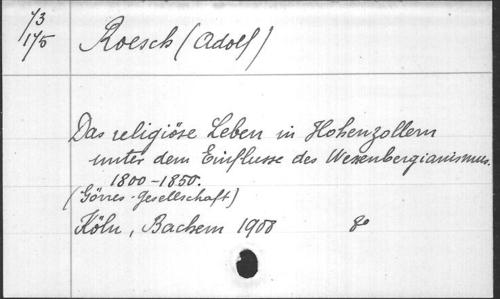 73
175
Roesch (Adolf)
Das religiöse Leben in Hohenzollern
unter dem Einflusse des Wessenbergianismus.
1800-1850.
(Görres-Gesellschaft)
Köln, Bachem 1908 8°